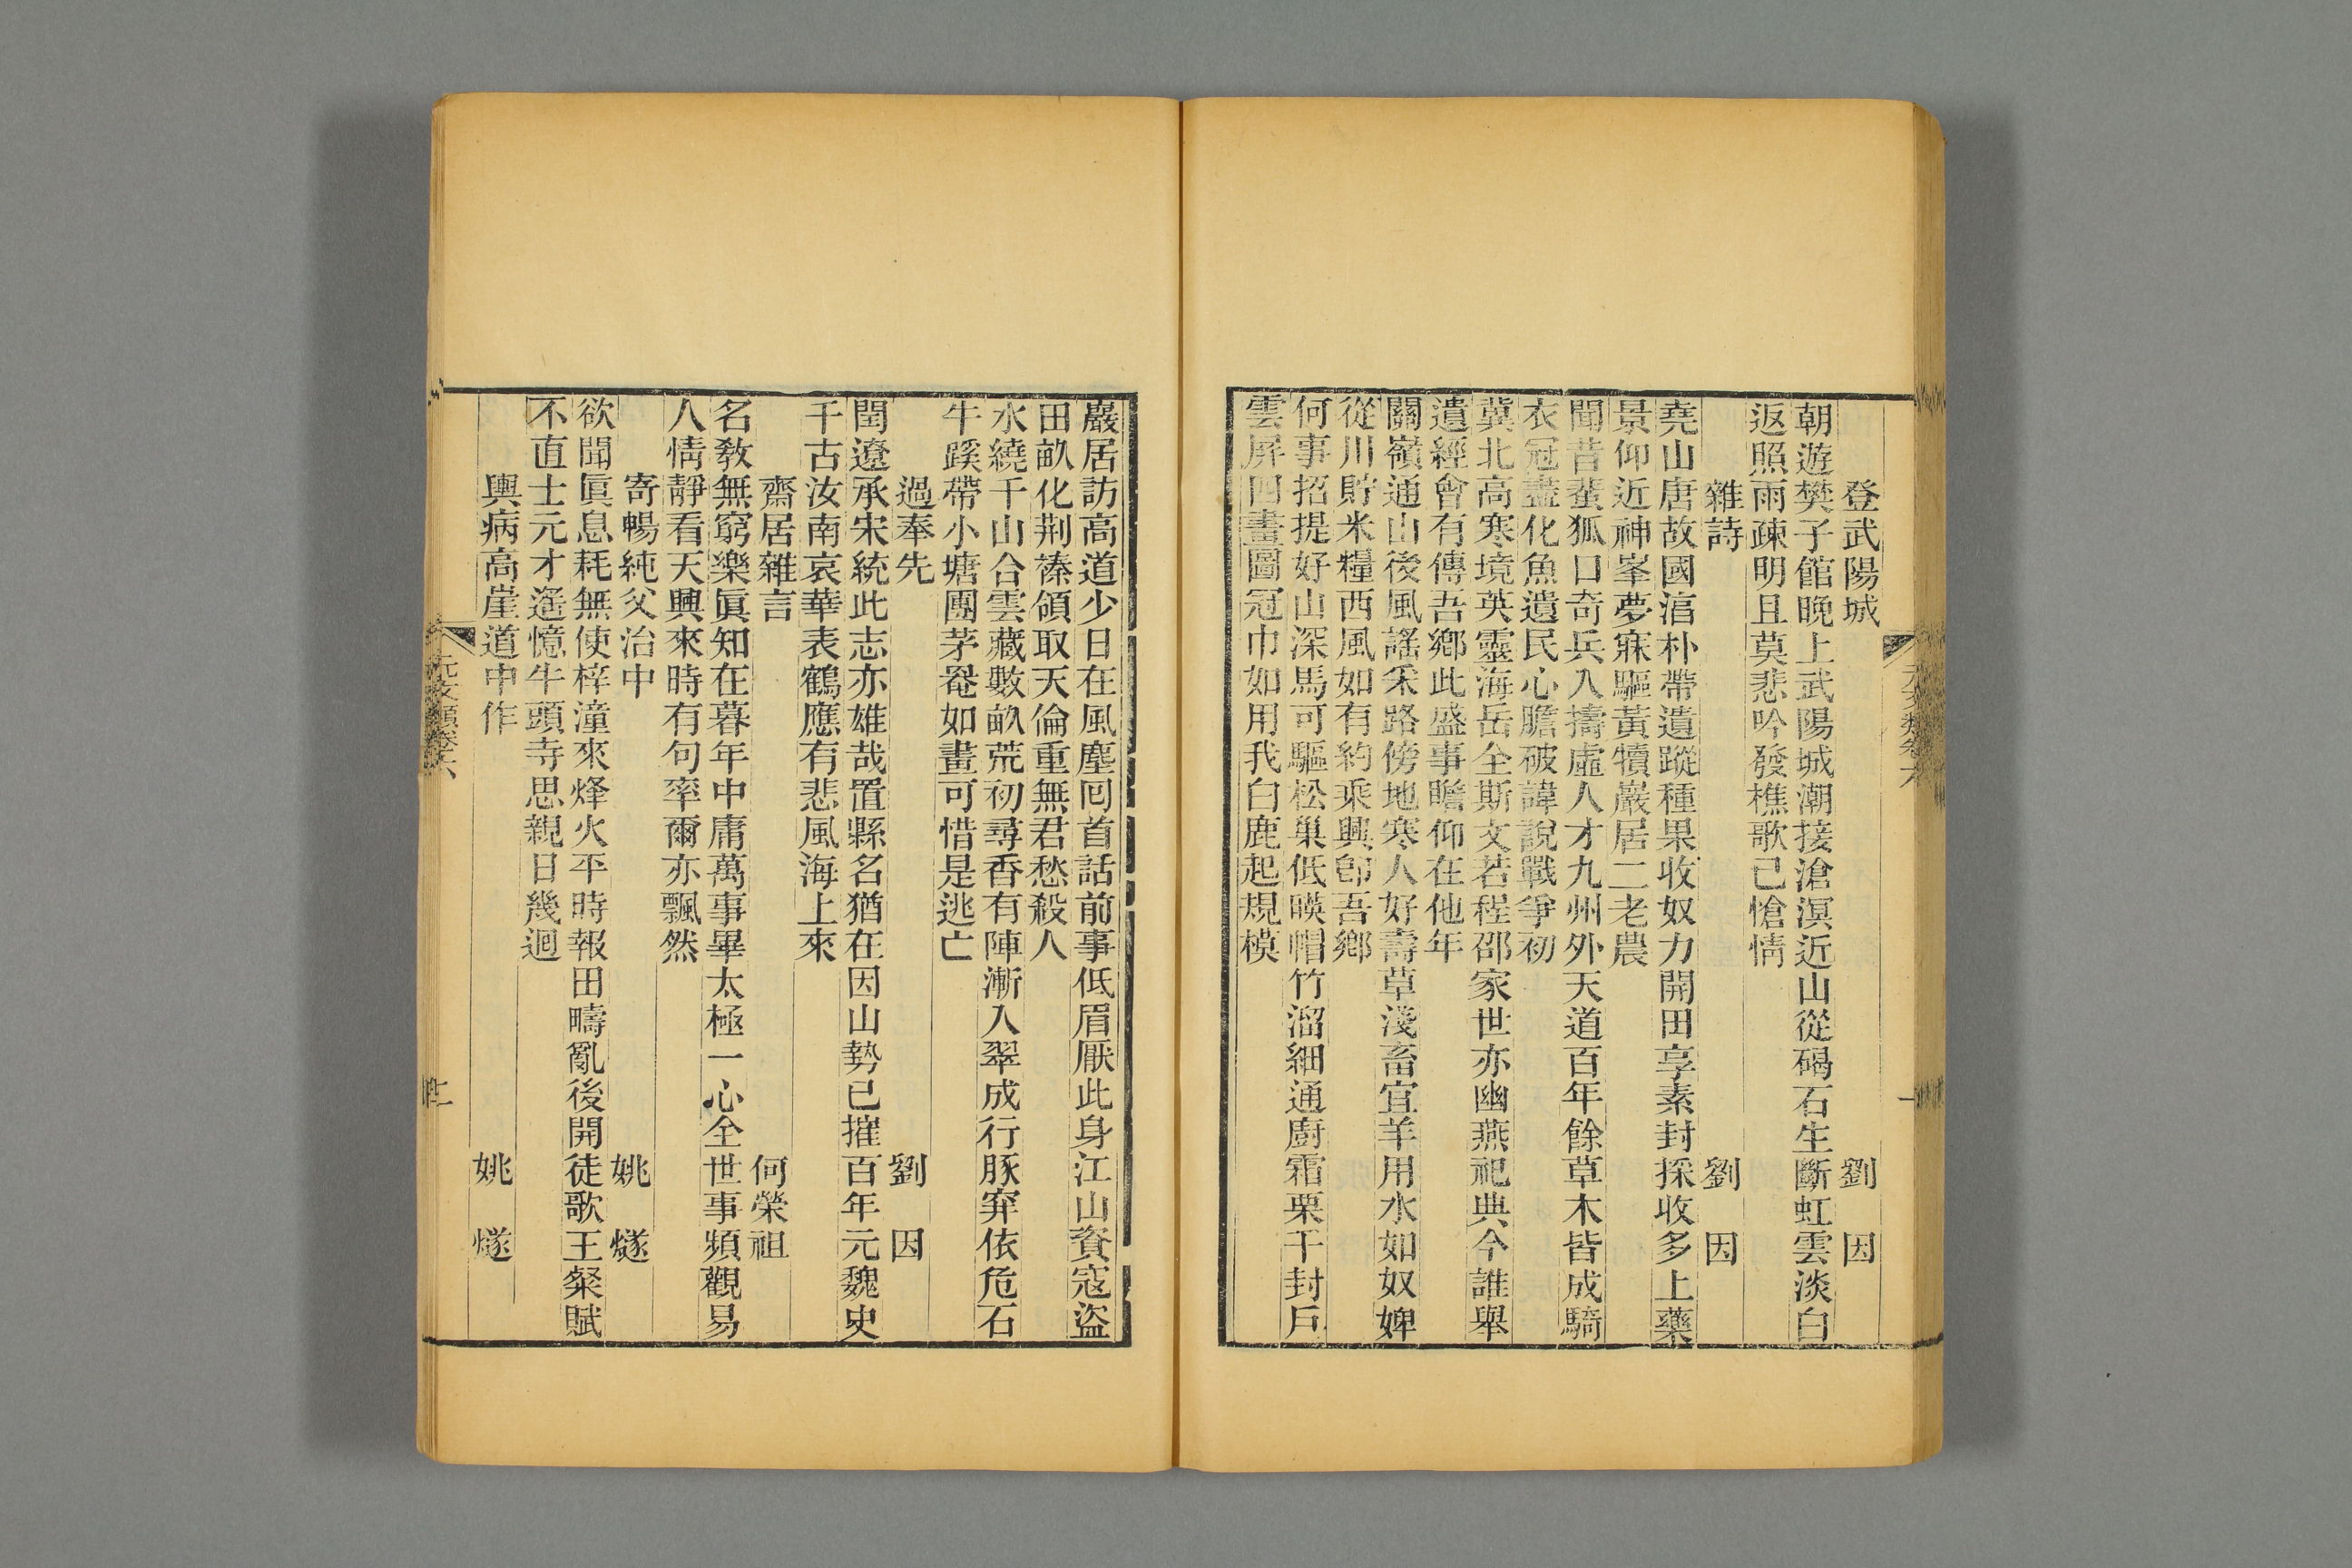 登武陽城 劉因
朝遊樊子館晚上武陽城潮接滄溟近山從碣石生斷虹雲淡白
返照雨疎明且莫悲吟發樵歌已愴情
雜詩 劉因
堯山唐故國淳朴帶遺蹤種果收奴力開田享素封採收多上藥
景仰近神峯夢寐驅黃犢巖居二老農
聞昔蜚狐口奇兵入擣虛人才九州外天道百年餘草木皆成騎
衣冠盡化魚遺民心膽破諱說戰爭初
冀北高寒境英靈海岳全斯文若程邵家世亦幽燕祀典今誰舉
遺經會有傳吾鄉此盛事瞻仰在他年
關嶺通山後風謠釆路傍地寒人好壽草淺畜宜羊用水如奴婢
從川貯米糧西風如有約乘興卽吾鄉
何事招提好山深馬可驅松巢低暎帽竹溜細通廚霜栗千封戶
雲屏四畫圖冠巾如用我白鹿起規模
元文類卷六
巖居訪高道少日在風塵回首話前事低眉厭此身江山資寇盜
田畝化荆榛領取天倫重無君愁殺人
水繞千山合雲藏數畝荒初尋香有陣漸入翠成行豚穽依危石
牛蹊帶小塘團茅罨如畫可惜是逃亡
過奉先 劉因
閏遼承宋統此志亦雄哉置縣名猶在因山勢已摧百年元魏史
千古汝南哀華表鶴應有悲風海上來
齋居雜言 何榮祖
名敎無窮樂眞知在暮年中庸萬事畢太極一心全世事頻觀易
人情靜看天興來時有句率爾亦飄然
寄暢純父治中 姚燧
欲聞眞息耗無使梓潼來烽火平時報田疇亂後開徒歌王粲賦
不直士元才遙憶牛頭寺思親日幾迴
輿病高崖道中作 姚燧
元文類卷六